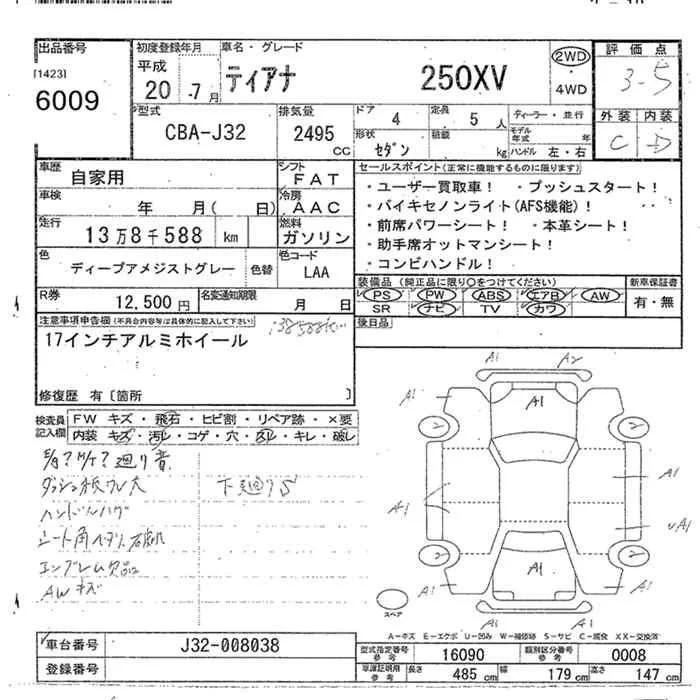 出品番号
[1423]
6009
初度登録年月
平成
20 . 7 月
車名・グレード
ティアナ 250XV
2WD
4WD
評価点
3-5
型式
CBA-J32
排気量
2495
CC
ドア
4
定員
5 人
形状
セダン
積載
kg
ディーラー・並行
モデル年式 年
ハンドル 左・右
外装 内装
C D
車歴
自家用
シフト
FAT
車検
年 月( 日)
冷房
AAC
走行
13万8千588 km
燃料
ガソリン
色
ディープアメジストグレー
色替
色コード
LAA
R券
12,500円
名変通知期限
月 日
セールスポイント(正常に機能するものに限ります)
・ユーザー買取車! ・プッシュスタート!
・バイキセノンライト(AFS機能)!
・前席パワーシート! ・本革シート!
・助手席オットマンシート!
・コンビハンドル!
装備品 (純正品に限り○をつけてください)
PS PW ABS エアB AW
SR ナビ TV カワ
新車保証書
有・無
後日品
注意事項申告欄(不具合内容等は具体的に記入して下さい)
17インチアルミホイール
修復歴 有〔箇所 〕
検査員記入欄
FW キズ・飛石・ヒビ割・リペア跡・×要
内装 キズ・汚レ・コゲ・穴・スレ・キレ・破レ
廻り音
ハンドルハゲ
エンブレム欠品
AWキズ
A1 A2
A1
A1
A1
2 2
A1
A1
A1
2 2
A1
A1
A1
A1 A1
スペア
A-キズ E-エクボ U-凹み W-補修跡 S-サビ C-腐食 XX-交換済
車台番号
J32-008038
登録番号
型式指定番号
参考
16090
類別区分番号
参考
0008
車庫証明用
参考
長さ
485 cm
幅
179 cm
高さ
147 cm